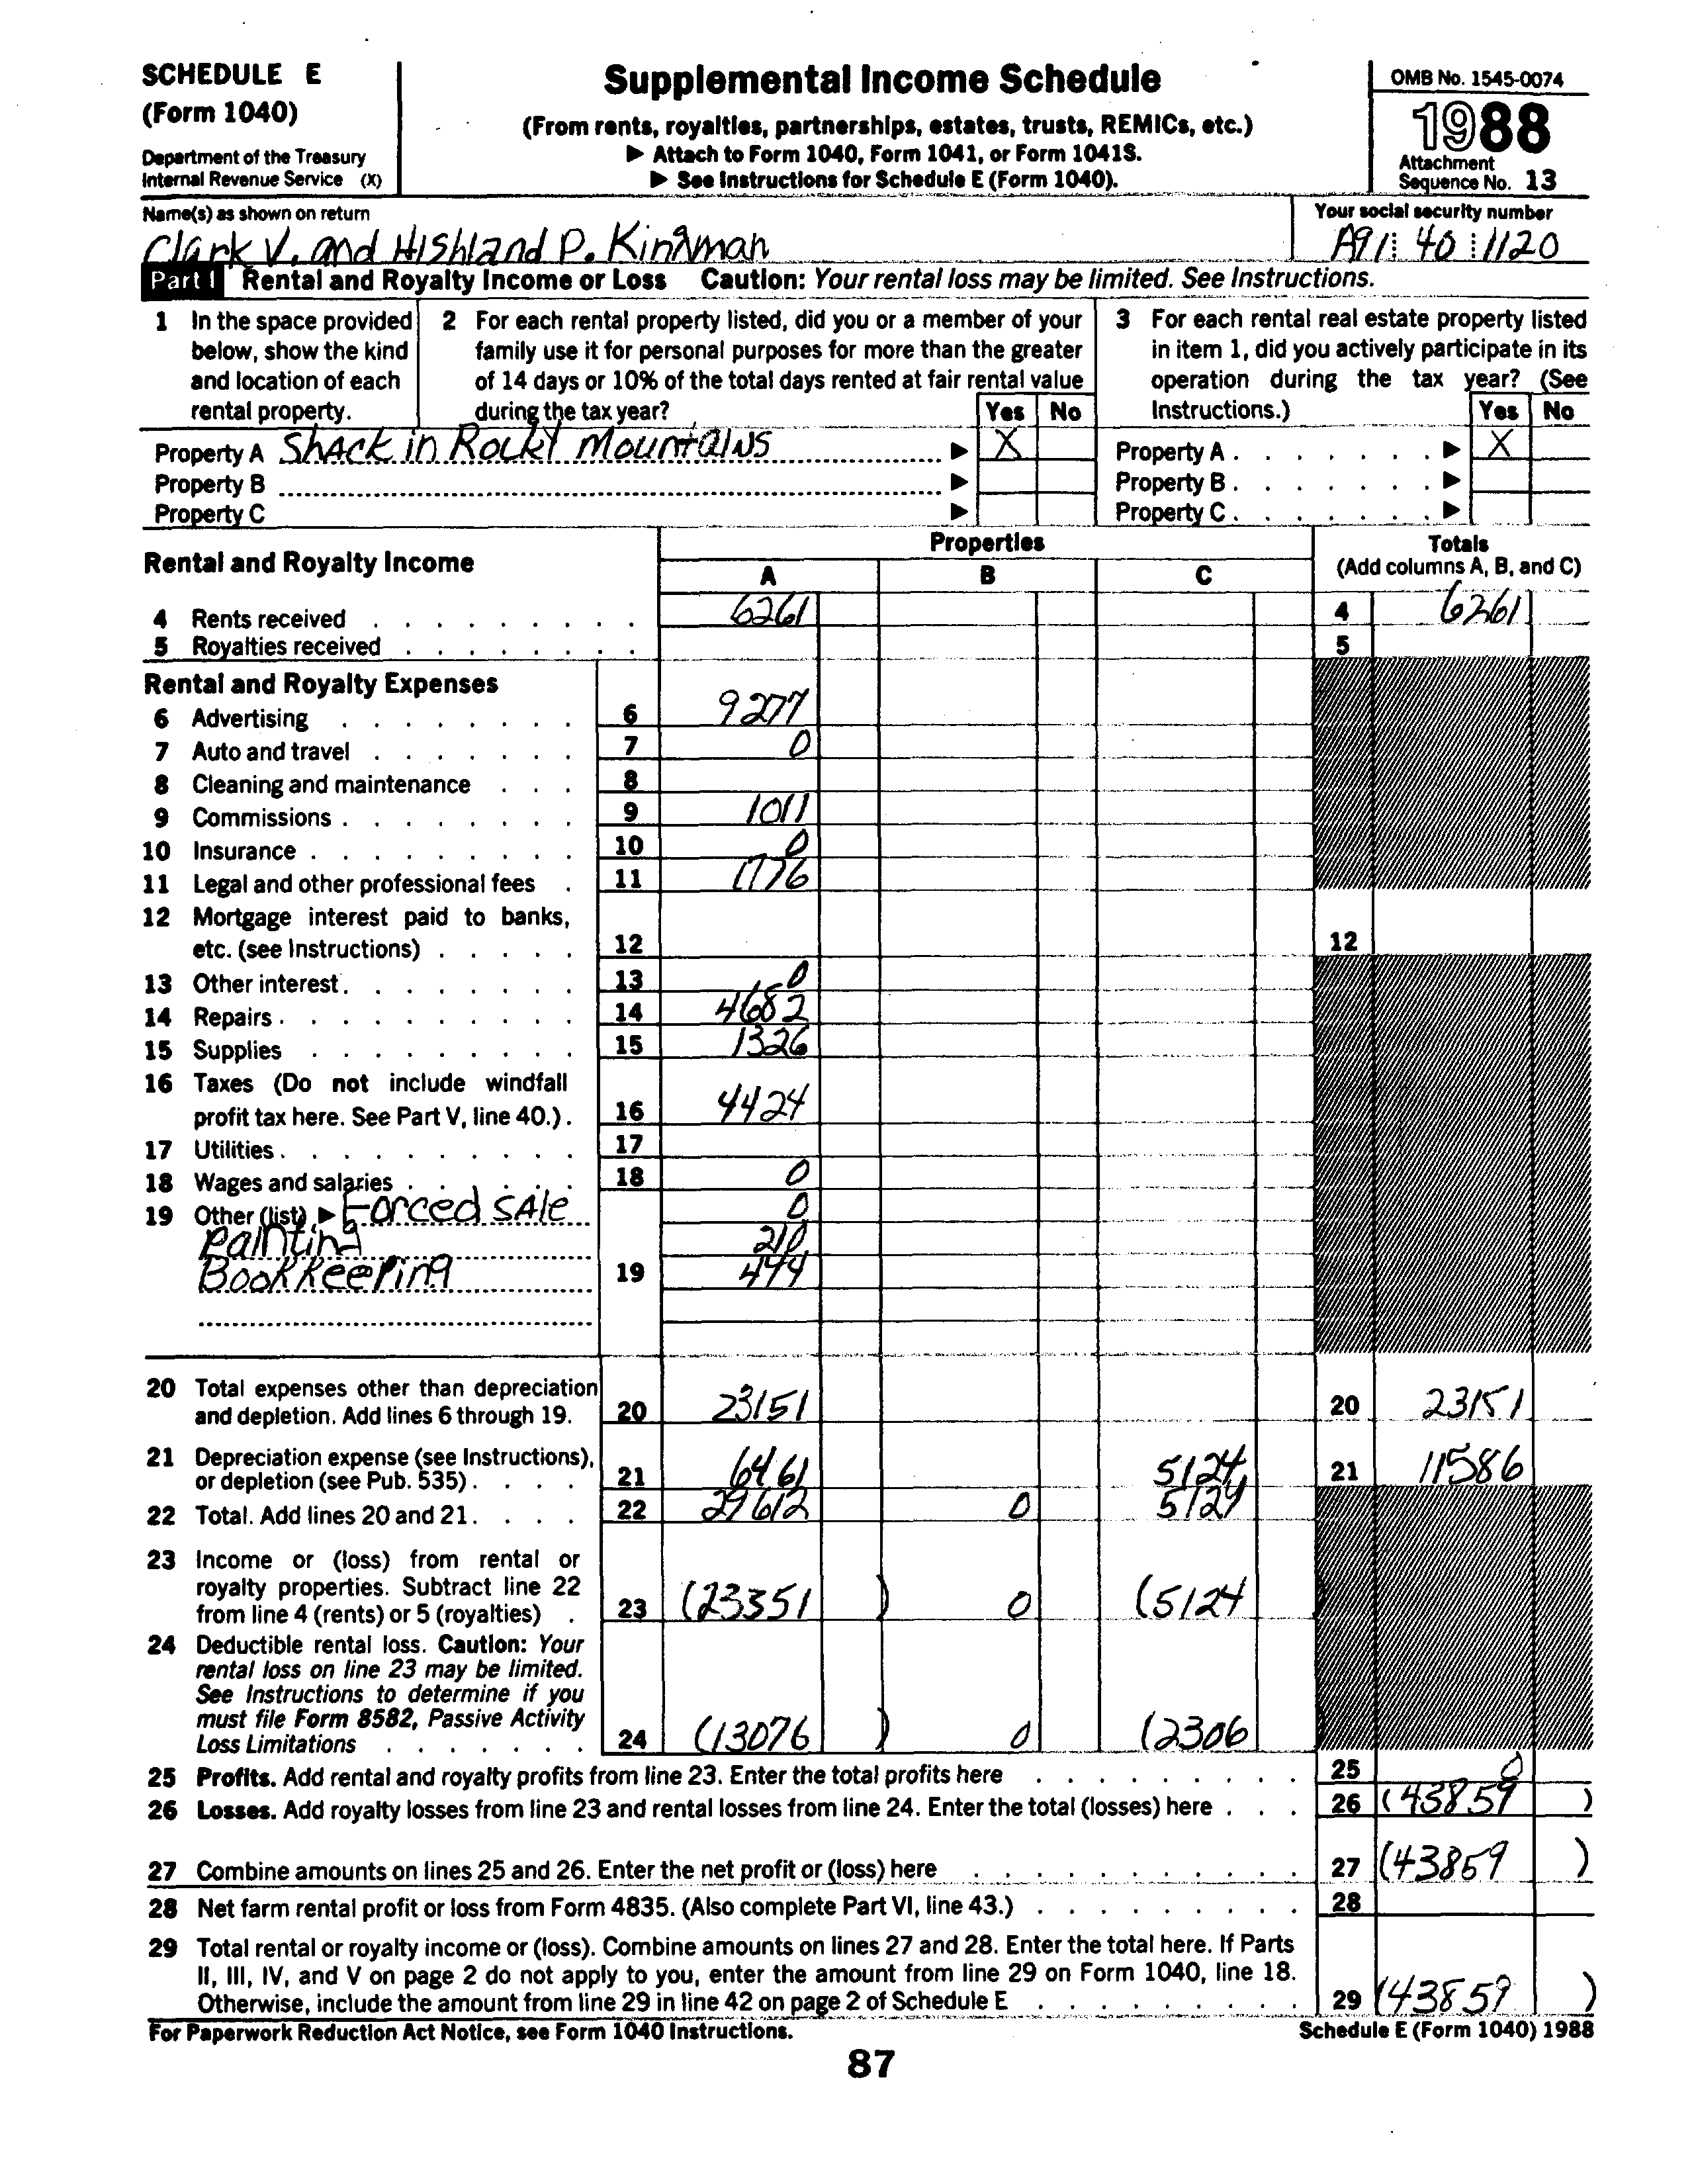 SCHEDULE E
(Form 1040)
Department of the Treasury
Internal Revenue Service (X)
Supplemental Income Schedule
(From rents, royalties, partnerships, estates, trusts, REMICs, etc.)
▶ Attach to Form 1040, Form 1041, or Form 1041S.
▶ See Instructions for Schedule E (Form 1040).
OMB No. 1545-0074
1988
Attachment
Sequence No. 13
Name(s) as shown on return
Clark V. and Highland P. Kingman
Your social security number
A91 40 1120
Part I Rental and Royalty Income or Loss Caution: Your rental loss may be limited. See Instructions.
1 In the space provided
below, show the kind
and location of each
rental property.
2 For each rental property listed, did you or a member of your
family use it for personal purposes for more than the greater
of 14 days or 10% of the total days rented at fair rental value
during the tax year? Yes No
3 For each rental real estate property listed
in item 1, did you actively participate in its
operation during the tax year? (See
Instructions.) Yes No
Property A Shack in Rocky Mountains ▶ X
Property B ▶
Property C ▶
Property A . ▶ X
Property B . ▶
Property C . ▶
Rental and Royalty Income
Properties
A B C
Totals
(Add columns A, B, and C)
4 Rents received 6261 4 6261
5 Royalties received 5
Rental and Royalty Expenses
6 Advertising 6 9277
7 Auto and travel 7 0
8 Cleaning and maintenance 8
9 Commissions 9 1011
10 Insurance 10 0
11 Legal and other professional fees 11 1776
12 Mortgage interest paid to banks,
etc. (see Instructions) 12 12
13 Other interest 13 0
14 Repairs 14 4682
15 Supplies 15 1326
16 Taxes (Do not include windfall
profit tax here. See Part V, line 40.) 16 4424
17 Utilities 17
18 Wages and salaries 18 0
19 Other (list) ▶ Forced Sale 0
Painting 210
Bookkeeping 19
20 Total expenses other than depreciation
and depletion. Add lines 6 through 19. 20 23151 20 23151
21 Depreciation expense (see Instructions),
or depletion (see Pub. 535) 21 6461 5124 21 11586
22 Total. Add lines 20 and 21 22 29612 0 5124
23 Income or (loss) from rental or
royalty properties. Subtract line 22
from line 4 (rents) or 5 (royalties) 23 (23351 ) 0 (5124 )
24 Deductible rental loss. Caution: Your
rental loss on line 23 may be limited.
See Instructions to determine if you
must file Form 8582, Passive Activity
Loss Limitations 24 (13076 ) 0 (2306
25 Profits. Add rental and royalty profits from line 23. Enter the total profits here 25 0
26 Losses. Add royalty losses from line 23 and rental losses from line 24. Enter the total (losses) here 26 (43859 )
27 Combine amounts on lines 25 and 26. Enter the net profit or (loss) here 27 (43859 )
28 Net farm rental profit or loss from Form 4835. (Also complete Part VI, line 43.) 28
29 Total rental or royalty income or (loss). Combine amounts on lines 27 and 28. Enter the total here. If Parts
II, III, IV, and V on page 2 do not apply to you, enter the amount from line 29 on Form 1040, line 18.
Otherwise, include the amount from line 29 in line 42 on page 2 of Schedule E 29 (43859 )
For Paperwork Reduction Act Notice, see Form 1040 Instructions.
Schedule E (Form 1040) 1988
87